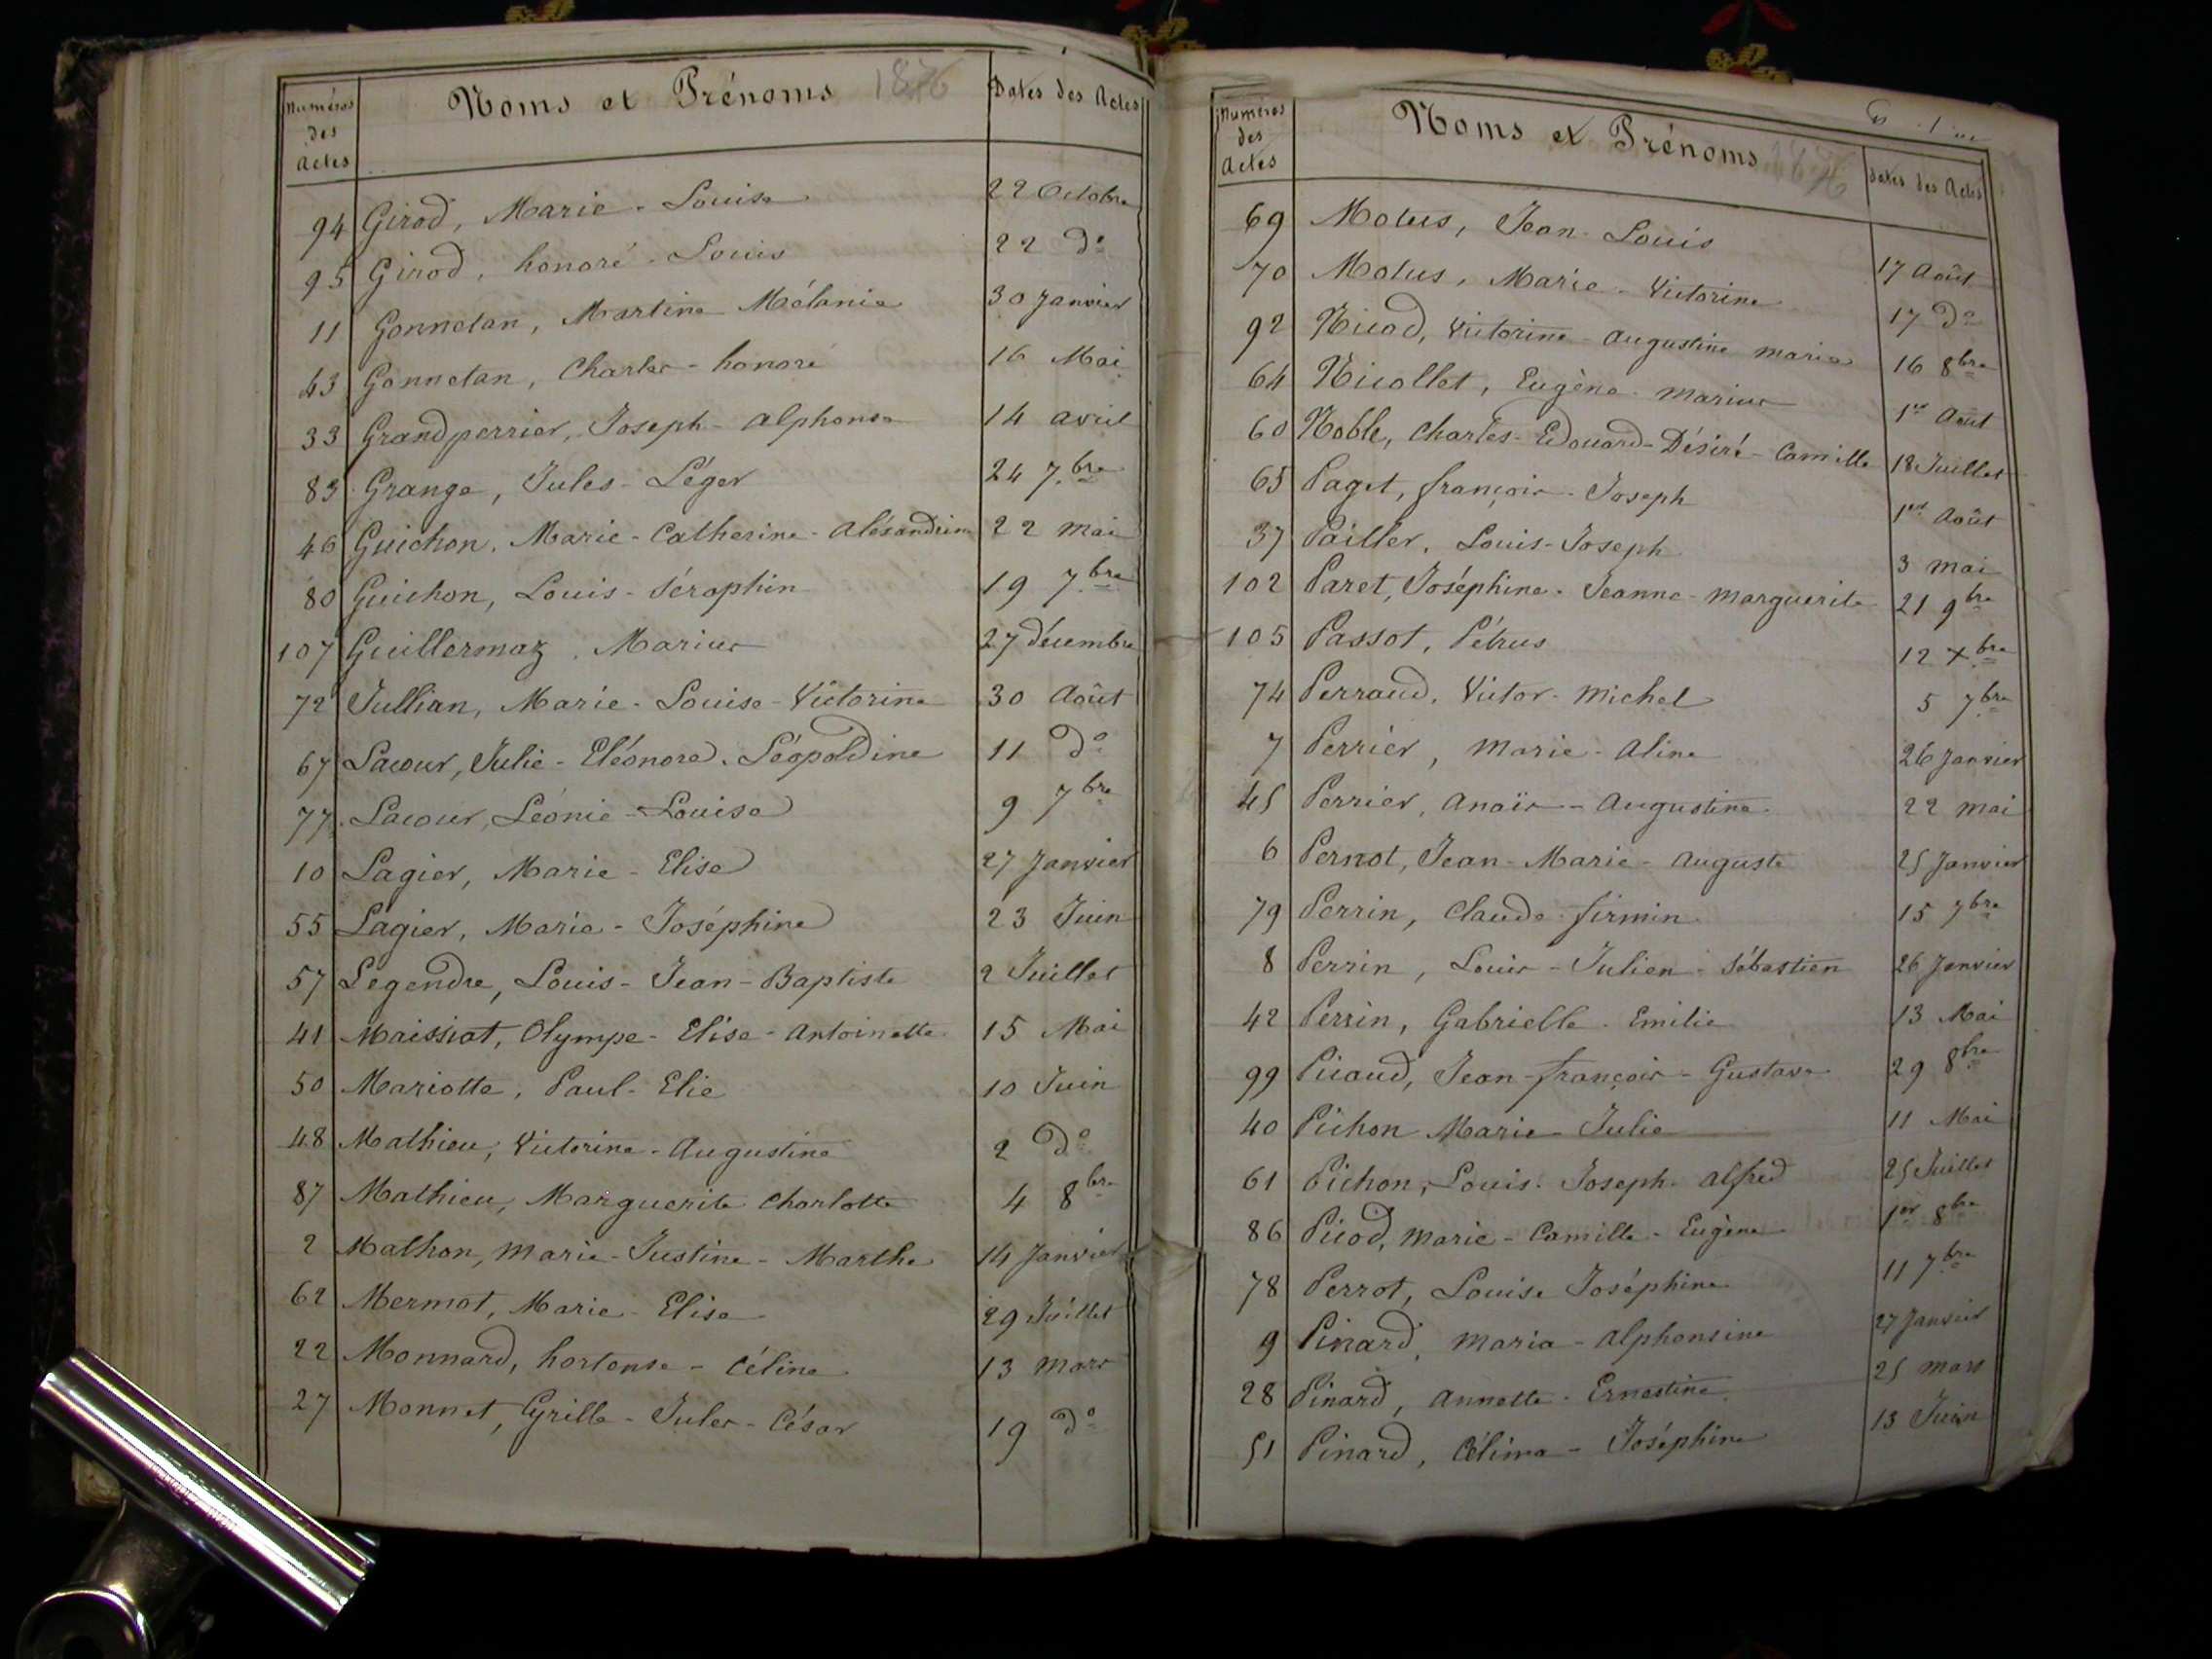 Numéros des Actes
Noms et Prénoms 1876
Dates des Actes
94 Girod, Marie - Louise 22 Octobre
95 Girod, honoré - Louis 22 do
11 Gonnetan, Martine Mélanie 30 Janvier
43 Gonnetan, Charles - honoré 16 Mai
33 Grandperrier, Joseph - alphonse 14 avril
83 Grange, Jules - Léger 24 7.bre
46 Guichon, Marie - Catherine - Alésandrine 22 mai
80 Guichon, Louis - Séraphin 19 7.bre
107 Guillermaz, Marius 27 décembre
72 Jullian, Marie - Louise - Victorine 30 Août
67 Lacour, Julie - Eléonore - Léopoldine 11 do
77 Lacour, Léonie - Louise 9 7bre
10 Lagier, Marie - Elise 27 Janvier
55 Lagier, Marie - Joséphine 23 Juin
57 Legendre, Louis - Jean - Baptiste 2 Juillet
41 Maissiat, Olympe - Elise - Antoinette 15 Mai
50 Mariotte, Paul - Elie 10 Juin
48 Mathieu, Victorine - Augustine 2 do
87 Mathieu, Marguerite Charlotte 4 8bre
2 Mathon, Marie - Justine - Marthe 14 Janvier
62 Mermot, Marie - Elise 29 Juillet
22 Monnard, hortense - Céline 13 mars
27 Monnet, Cyrille - Jules - César 19 do
Numéros des Actes
Noms et Prénoms 1876
Dates des Actes
69 Motus, Jean - Louis 17 Août
70 Motus, Marie - Victorine 17 do
92 Nicod, Victorine - Augustine marie 16 8bre
64 Nicollet, Eugène - marius 1er Août
60 Noble, Charles - Edouard - Désiré - Camille 18 Juillet
65 Paget, françois - Joseph 1er Août
37 Pailler, Louis - Joseph 3 mai
102 Paret, Joséphine - Jeanne - marguerite 21 9bre
105 Passot, Pétrus 12 Xbre
74 Perraud, Victor - michel 5 7bre
7 Perrier, marie - Aline 26 Janvier
45 Perrier, Anaïs - Augustine 22 mai
6 Pernot, Jean - Marie - Auguste 25 Janvier
79 Perrin, Claude firmin 15 7bre
8 Perrin, Louis - Julien - Sébastien 26 Janvier
42 Perrin, Gabrielle - Emilie 13 Mai
99 Picaud, Jean - françois - Gustave 29 8bre
40 Pichon Marie - Julie 11 Mai
61 Pichon, Louis - Joseph - alfred 25 Juillet
86 Picod, marie - Camille - Eugène 1er 8bre
78 Perrot, Louise Joséphine 11 7bre
9 Pinard, maria - alphonsine 27 Janvier
28 Pinard, Annette - Ernestine 25 mars
51 Pinard, Célina - Joséphine 13 Juin